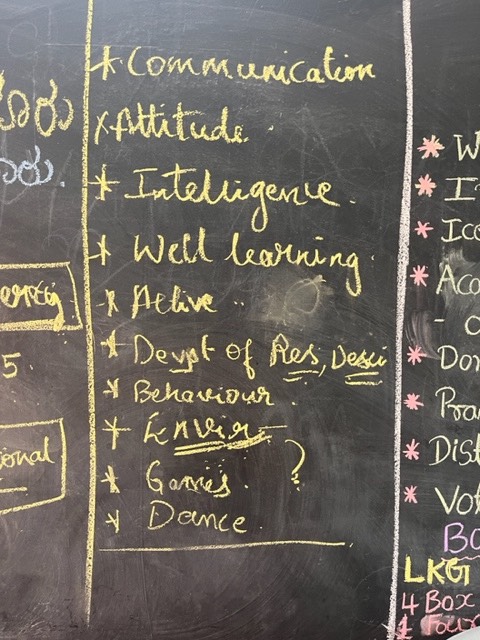 * Communication
* Attitude.
* Intelligence.
* Well learning.
* Active
* Devpt of Res, Desci
* Behaviour.
* Envir
* Games. ?
* Dance.
5.
ional
* W
* I
* Ico
* Aca
* Don
* Pra
* Dist
* Vot
Bo
LKG
4 Box
1 Four